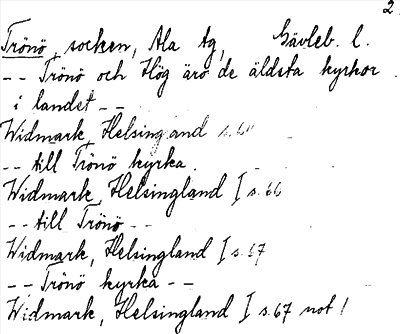 2
Trönö, socken, Ala tg, Gävleb. l.
-- Trönö och Hög äro de äldsta kyrkor
i landet --
Widmark, Helsingland s.
-- till Trönö kyrka
Widmark, Helsingland I s. 66
-- till Trönö --
Widmark, Helsingland I s. 67
-- Trönö kyrka --
Widmark, Helsingland I s. 67 not 1